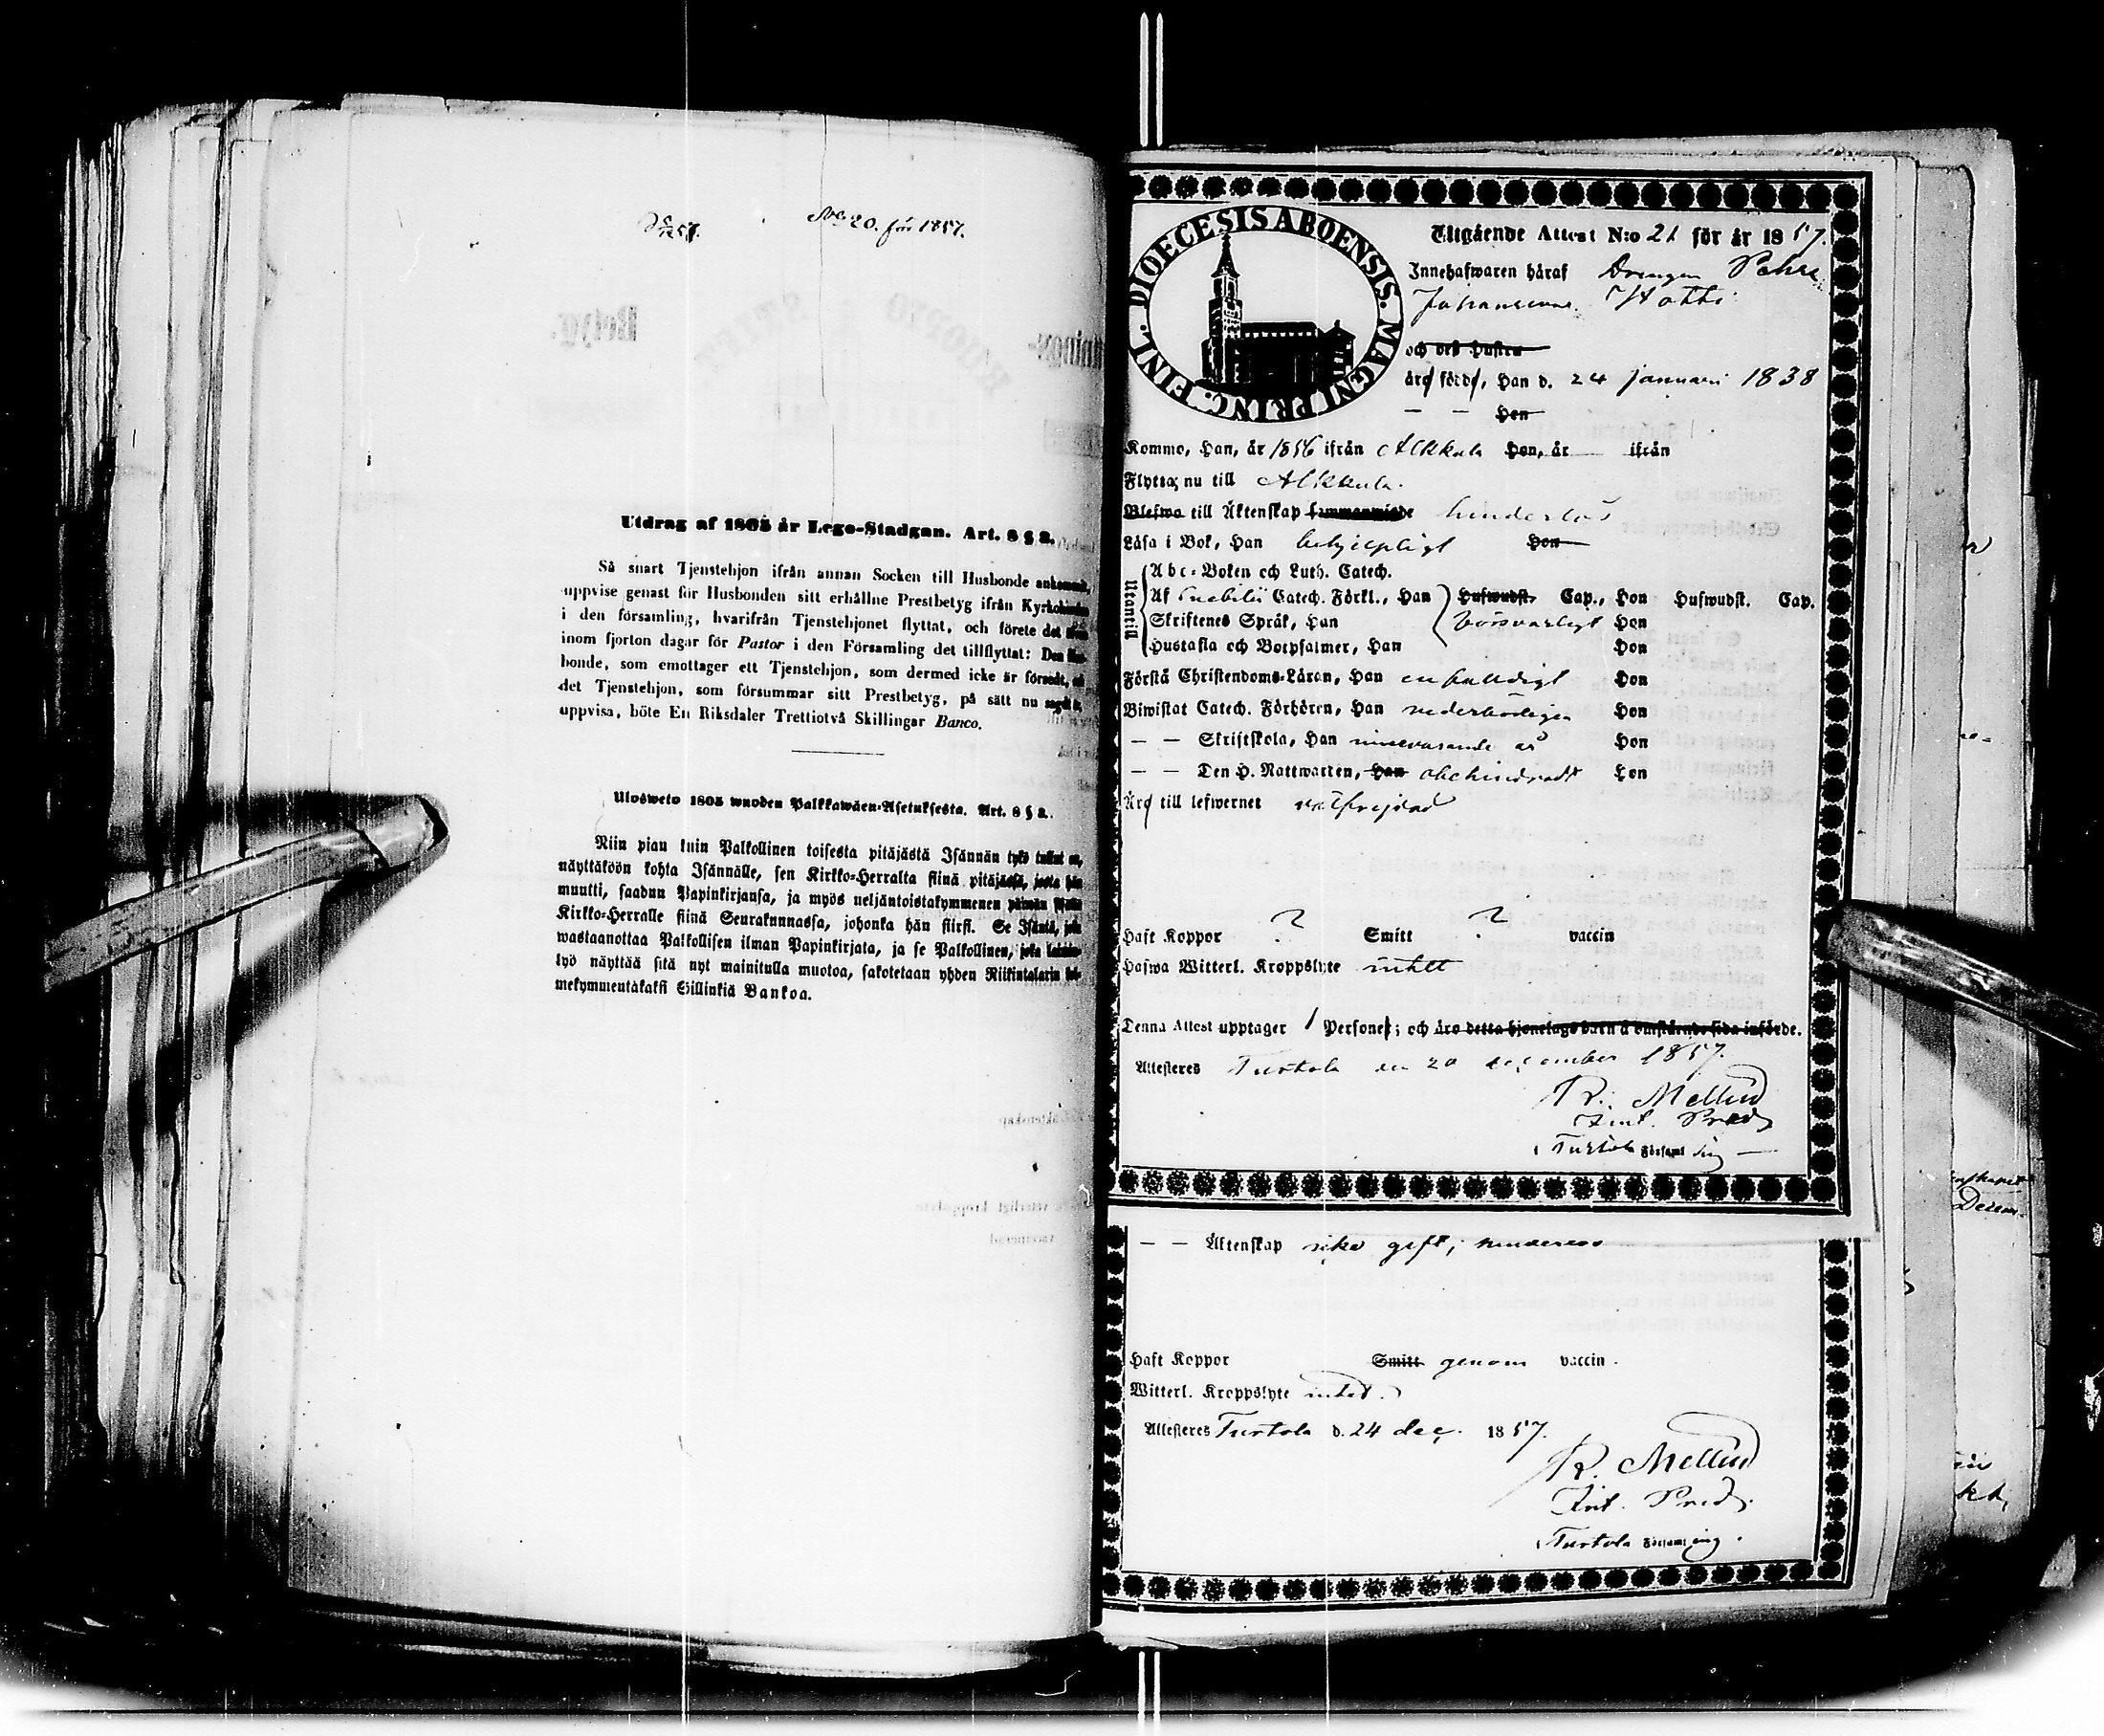 No 20. för 1857.
Utdrag af 1805 år Lego-Stadgan. Art. 8 § 2.
Så snart Tjenstehjon ifrån annan Socken till Husbonde ankommit,
uppvise genast för Husbonden sitt erhållne Prestbetyg ifrån
i den församling, hvarifrån Tjenstehjonet flyttat, och förete det
inom fjorton dagar för Pastor i den Församling det tillflyttat:
bonde, som emottager ett Tjenstehjon, som dermed icke är försedt,
det Tjenstehjon, som försummar sitt Prestbetyg, på sätt nu sagdt
uppvisa, böte En Riksdaler Trettiotvå Skillingar Banco.
Ulosweto 1805 wuoden Palkkawäen-Asetuksesta. Art. 8 § 2.
Niin pian kuin Palkollinen toisesta pitäjästä Isännän tykö tullut on,
näyttäköön kohta Isännälle, sen Kirkko-Herralta siinä pitäjässä, josta hän
muutti, saadun Papinkirjansa, ja myös neljäntoistakymmenen päiwän
Kirkko-Herralle siinä Seurakunnassa, johonka hän siirsi. Se Isäntä, joka
wastaanottaa Palkollisen ilman Papinkirjata, ja se Palkollinen, joka
lyö näyttää sitä nyt mainitulla muotoa, sakotetaan yhden Riikintalarin
mekymmentäkaksi Sillinkiä Bankoa.
FINL. DIOECESIS ABOENSIS. MAGNI PRINC.
Utgående Attest N:o 21 för år 1857.
Innehafwaren häraf Drengen
Johansson
och des Hustru
äro födde, Han d. 24 januari 1838
— — Hon
Komme, Han, år 1856 ifrån Alkkula Hon, år ifrån
Flytta nu till Alkkula.
till Äktenskap hinderlös
Läsa i Bok, Han behjelpligt Hon
Utantill
Abc-Boken och Luth. Catech.
Af Svebilii Catech. Förkl., Han Hufwudst. Cap., Hon Hufwudst. Cap.
Skriftenes Språk, Han försvarligt Hon
Hustafla och Botpsalmer, Han Hon
Förstå Christendoms-Läran, Han enfaldigt Hon
Biwistat Catech. Förhören, Han vederbörligen Hon
— — Skriftskola, Han innevarande år Hon
— — Den H. Nattwarden, Han obehindradt Hon
Äro till lefwernet välfrejdad
Haft Koppor ? Smitt ? vaccin
Hafwa Witterl. Kroppslyte intet
Denna Attest upptager 1 Personer; och äro detta hjonelags barn å omstående sida införde.
Attesteras Turtola den 20 december 1857.
R. Mellin
Pred.
Turtola Församling
— — Äktenskap icke gift; hinderlös
Haft Koppor Smitt genom vaccin.
Witterl. Kroppslyte intet.
Attesteras Turtola d. 24 dec. 1857.
R. Mellin
Pred.
Turtola Församling.
Decem-